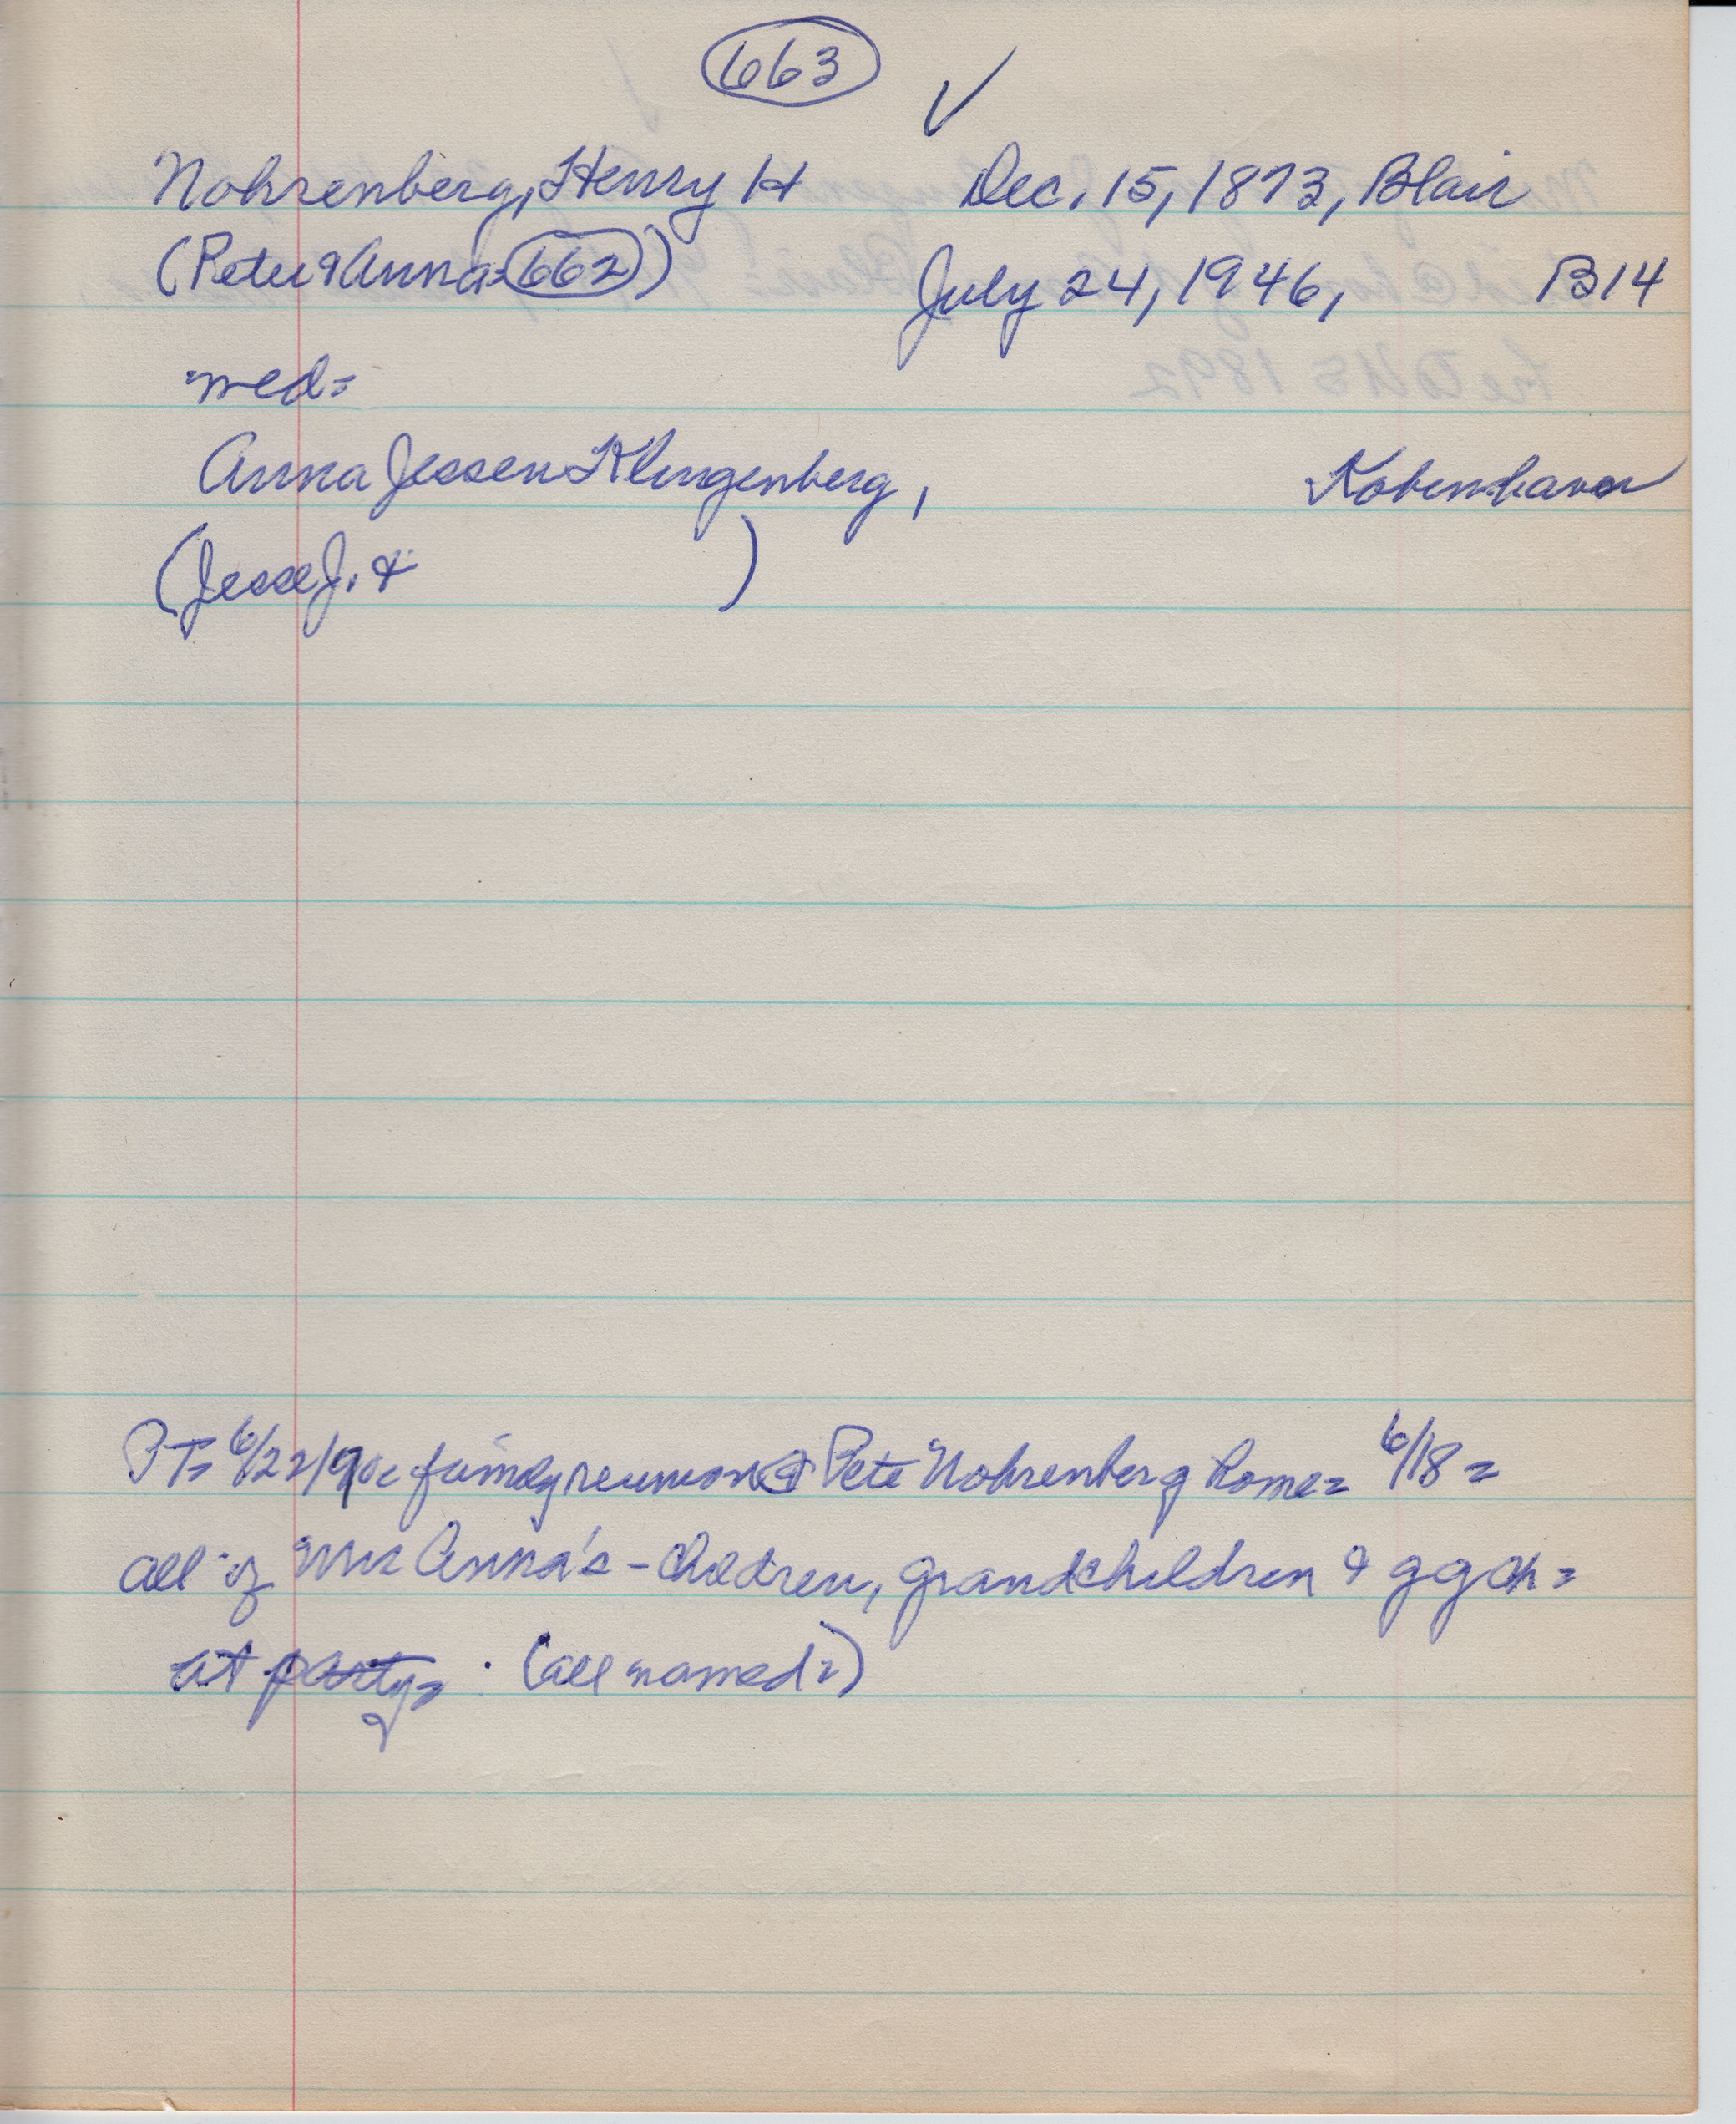 663 ✓
Nohrenberg, Henry H Dec. 15, 1873, Blair
(Peter & Anna= 662) July 24, 1946, B14
med=
Anna Jessen Klingenberg, Kobenhaven
(Jesse J. & )
PT= 6/22/ family reunion @ Pete Nohrenberg home= 6/18=
all of Mrs Anna's - children, grandchildren & g g ch=
at party= . (all named=)